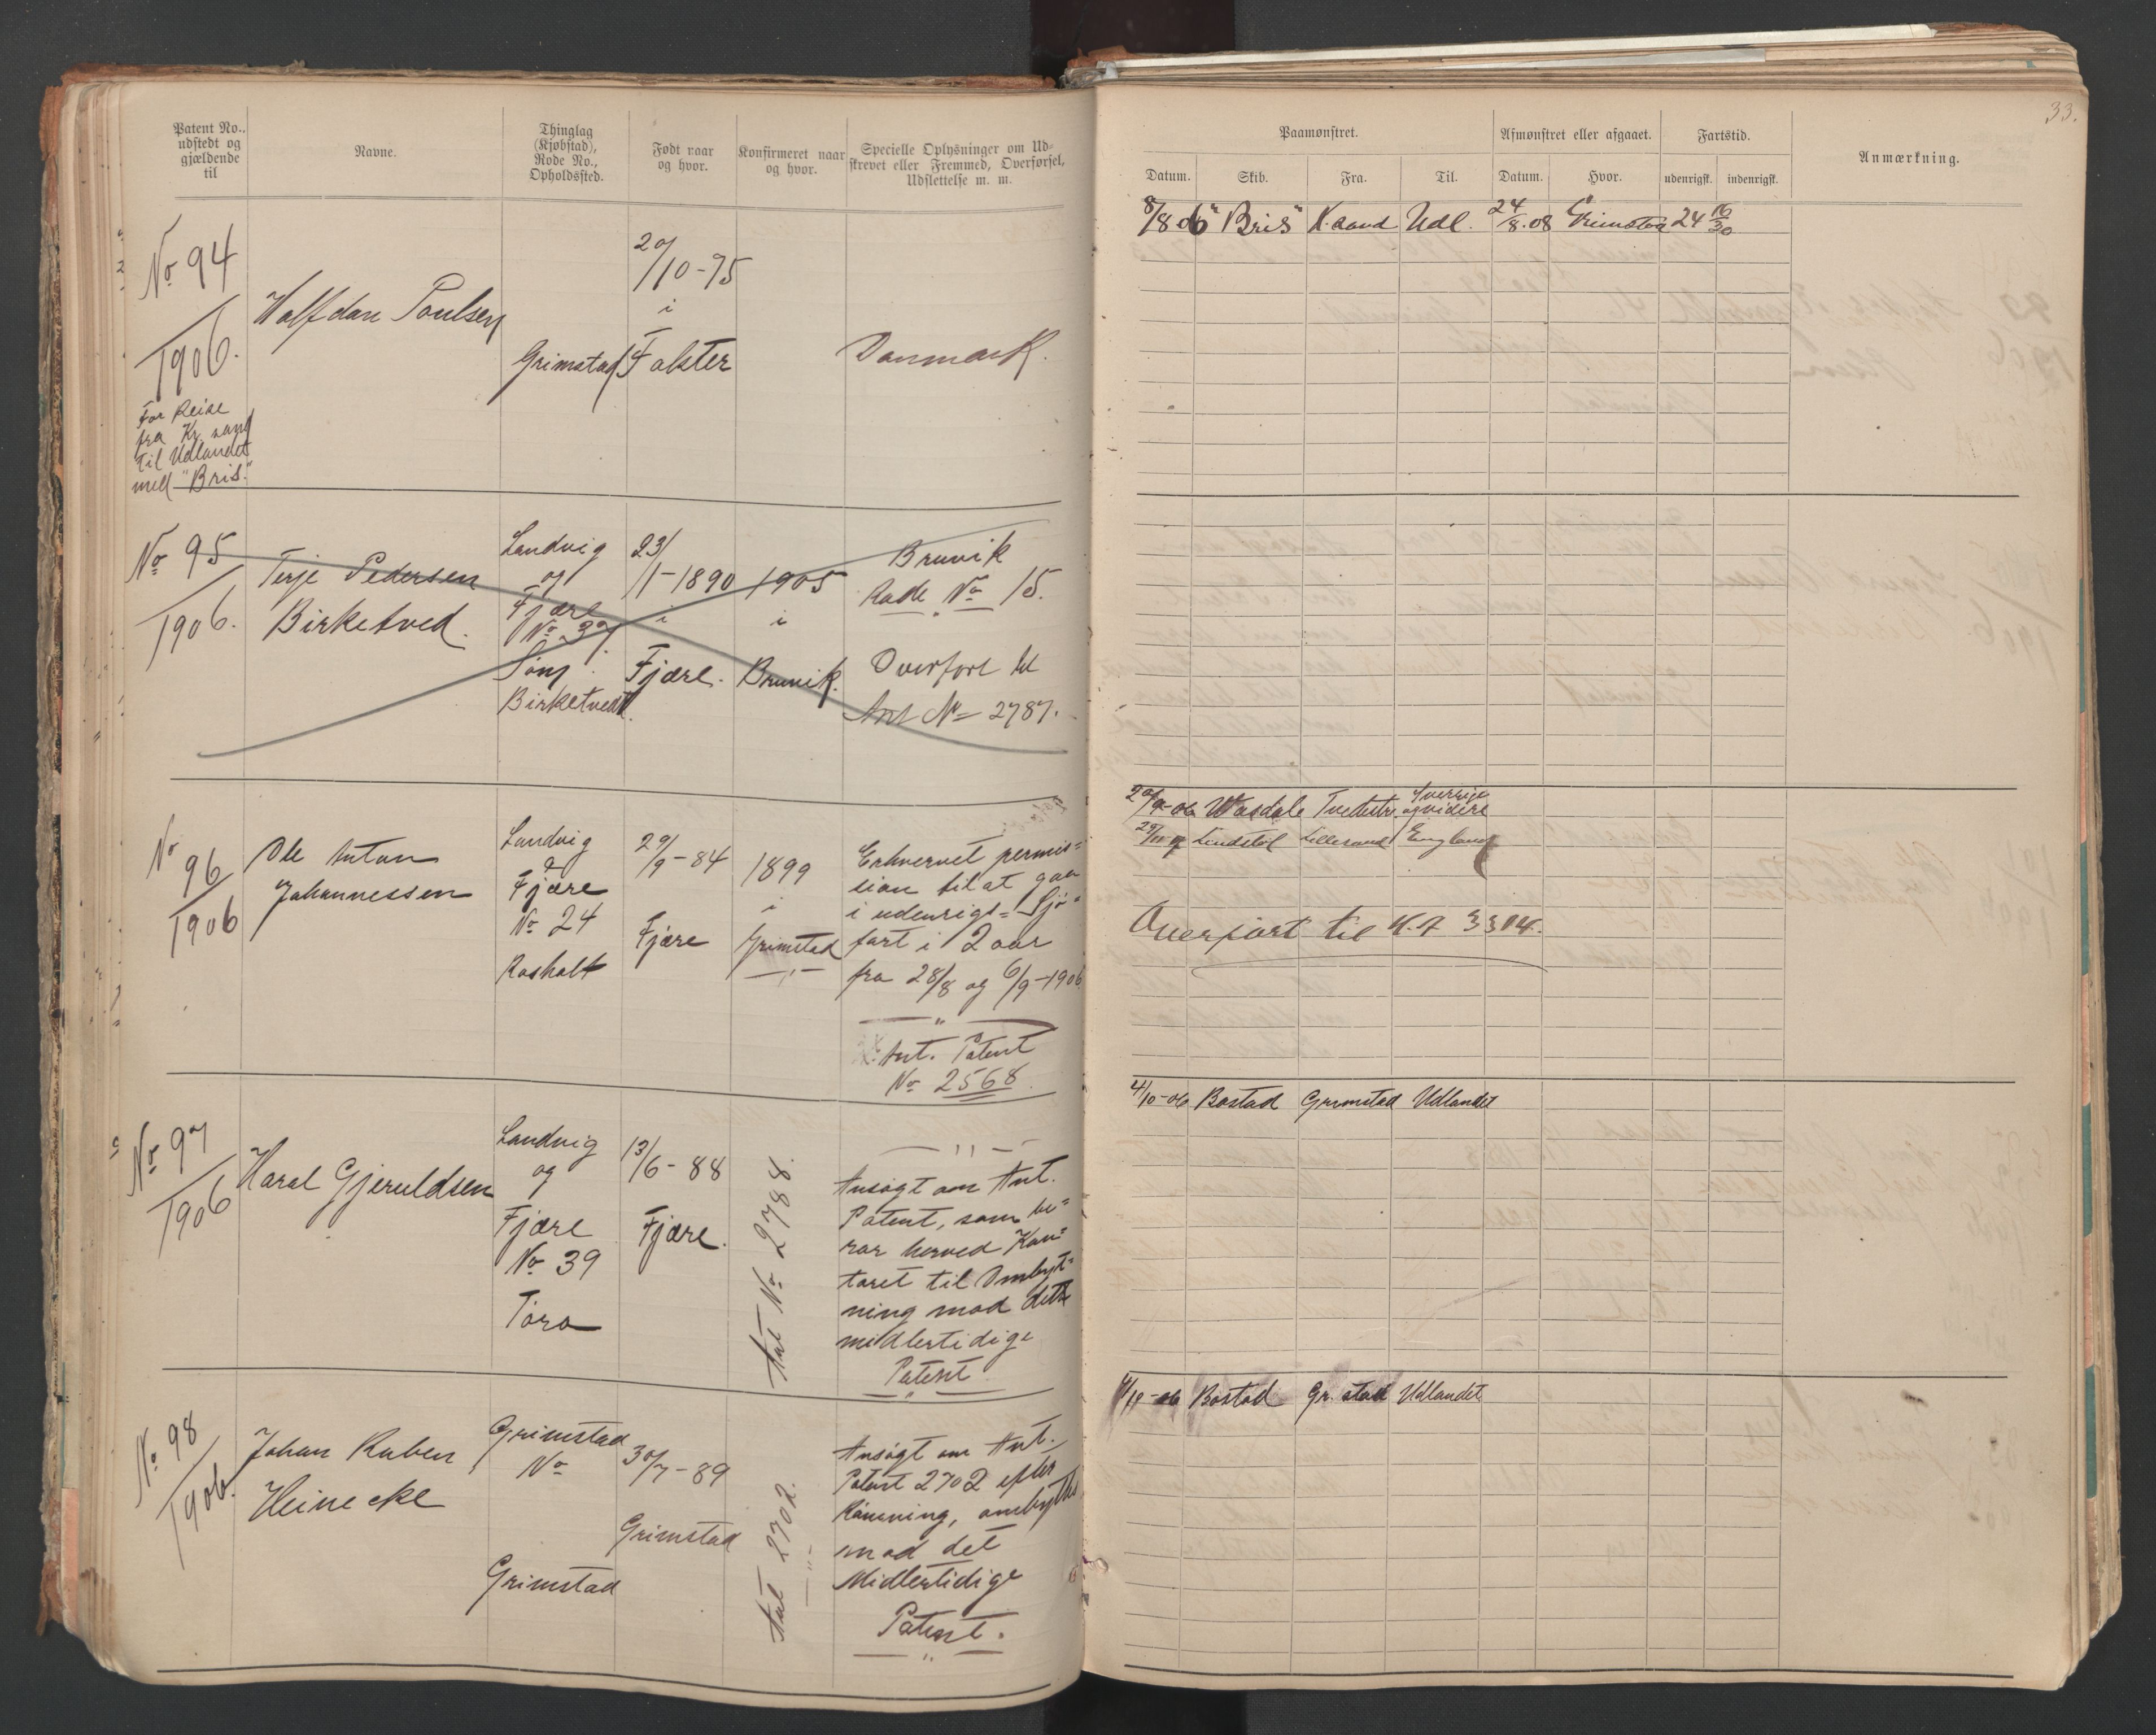 Patent No.,
udstedt og
gjældende
til
Navne.
Thinglag
(Kjøbstad),
Rode No.,
Opholdssted.
Født naar
og hvor.
Konfirmeret naar
og hvor.
Specielle Oplysninger om Ud-
skrevet eller Fremmed, Overførsel,
Udslettelse m. m.
No 94
1906.
For Reise
fra Kr. sand
til Udlandet
med "Bris".
Halfdan Poulsen
Grimstad
20/10-75
i
Falster
Danmark.
No 95
1906.
Terje Pedersen
Birketved.
Landvig
og
Fjære
No 37
Søm
Birketvedt
23/1-1890
i
Fjære.
1905
i
Bruvik.
Bruvik
Rode No 15.
Overført til
Ant No 2787.
No
96
1906
Ole Anton
Johannessen
Landvig
og
Fjære
No 24
Rosholt
29/9-84
Fjære
1899
i
Grimstad
Erhvervet permis=
sion til at gaa
i udenrigs= Sjø=
fart i 2 aar
fra 28/8 og 6/9-1906
Ant. Patent
No 2568.
No 97
1906
Haral Gjeruldsen
Landvig
og
Fjære
No 39
Tøra
13/6-88
Fjære.
Ant No 2788.
Ansøgt om Ant.
Patent, som be=
ror herved Kon=
toret til Ombyt=
ning mod dette
midlertidige
Patent
No 98
1906.
Johan Ruben
Heinecke
Grimstad
No
Grimstad
30/7-89
Grimstad
Ant 2702.
Ansøgt om Ant.
Patent 2702 efter
Rømning, ombyttes
mod det
Midlertidige
Patent.
33.
Paamønstret.
Afmønstret eller afgaaet.
Fartstid.
Anmærkning.
Datum.
Skib.
Fra.
Til.
Datum.
Hvor.
udenrigsk.
indenrigsk.
8/8 06 "Bris" K.sand Udl. 24/8.08 Grimstad 24 16/30
20/9-06 Wasdale Tvedestr. Sverrige
og videre
Lindstøl Lillesand England
Overført til H.A 3304.
4/10-06 Bostad Grimstad Udlandet
4/10-06 Bostad Gr. stad Udlandet